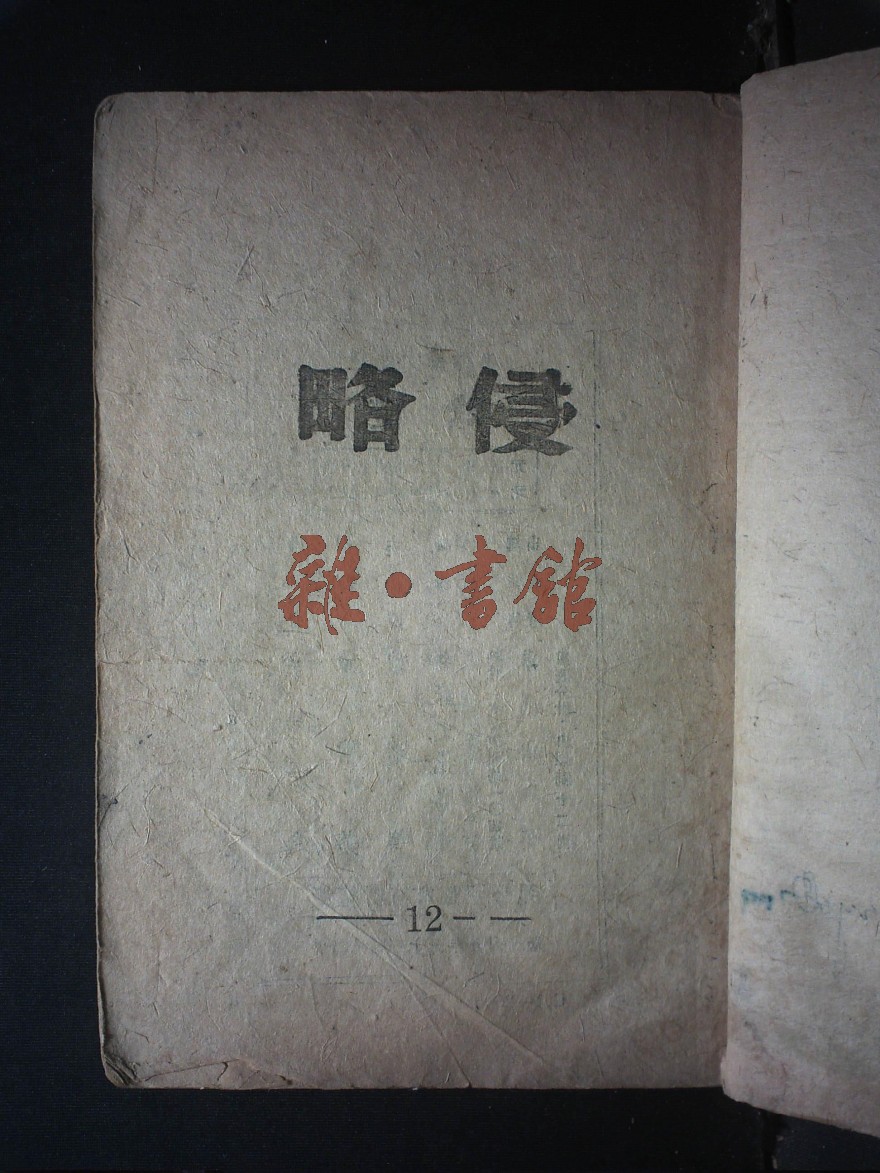 侵略
雜·書館
12